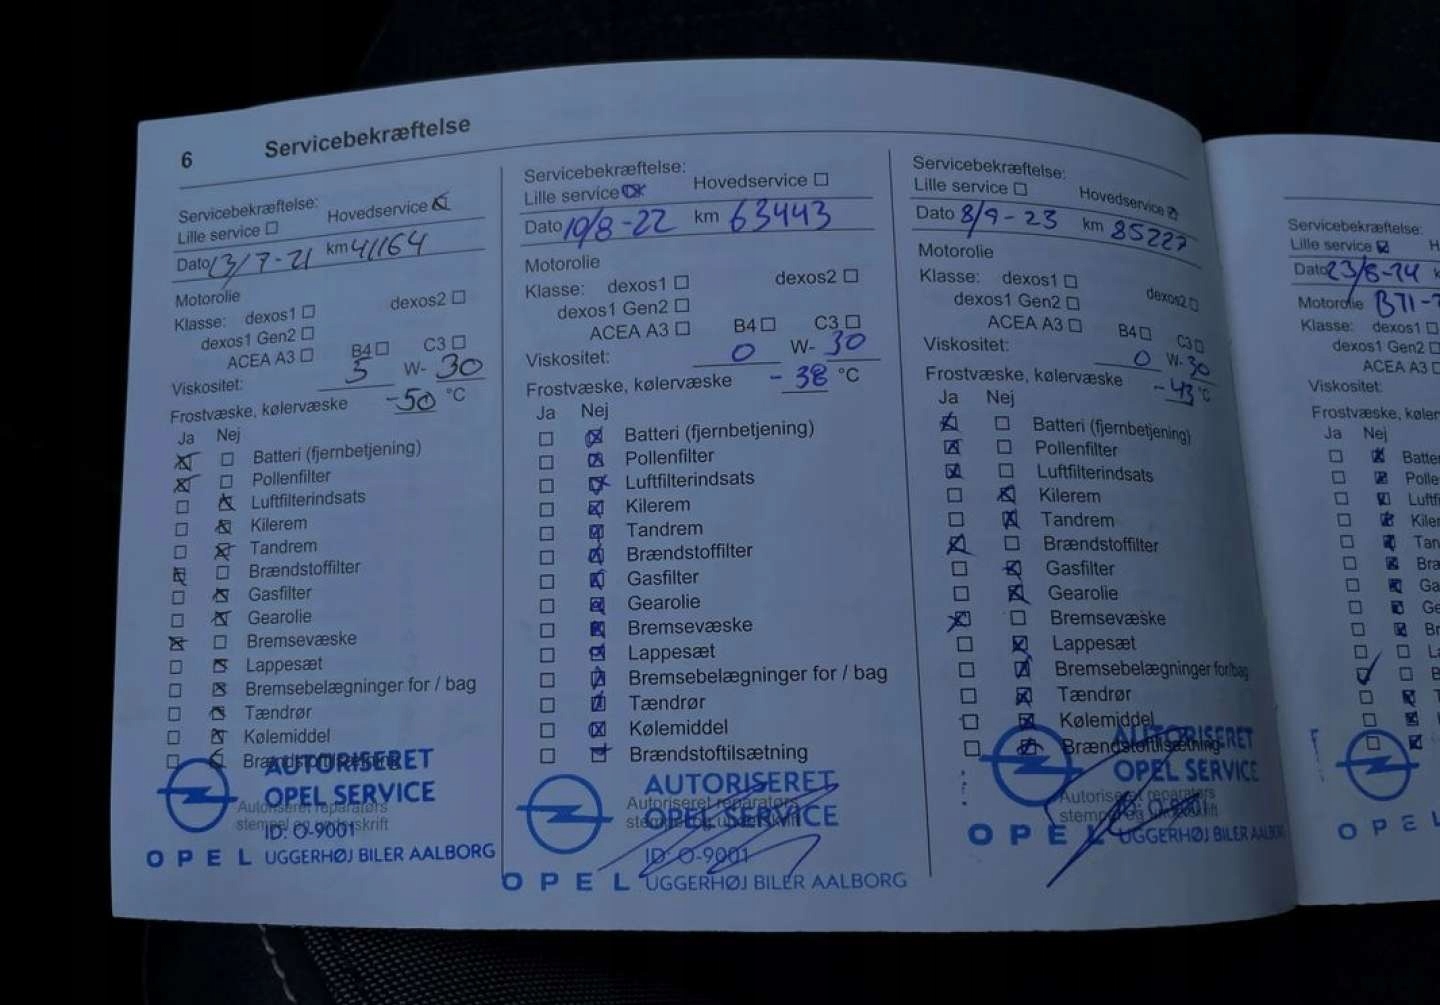 6 Servicebekræftelse
Servicebekræftelse:
Lille service ☐ Hovedservice ☒
Dato 13/7-21 km 41164
Motorolie
Klasse: dexos1 ☐ dexos2 ☐
dexos1 Gen2 ☐
ACEA A3 ☐ B4 ☐ C3 ☐
Viskositet: 5 W- 30
Frostvæske, kølervæske -50 °C
Ja Nej
☒ ☐ Batteri (fjernbetjening)
☒ ☐ Pollenfilter
☐ ☒ Luftfilterindsats
☐ ☒ Kilerem
☐ ☒ Tandrem
☒ ☐ Brændstoffilter
☐ ☒ Gasfilter
☐ ☒ Gearolie
☒ ☐ Bremsevæske
☐ ☒ Lappesæt
☐ ☒ Bremsebelægninger for / bag
☐ ☒ Tændrør
☐ ☒ Kølemiddel
☐ ☒ Brændstoftilsætning
AUTORISERET
OPEL SERVICE
Autoriseret reparatørs
stempel og underskrift
ID: O-9001
OPEL UGGERHØJ BILER AALBORG
Servicebekræftelse:
Lille service ☒ Hovedservice ☐
Dato 10/8-22 km 63443
Motorolie
Klasse: dexos1 ☐ dexos2 ☐
dexos1 Gen2 ☐
ACEA A3 ☐ B4 ☐ C3 ☐
Viskositet: 0 W- 30
Frostvæske, kølervæske -38 °C
Ja Nej
☐ ☒ Batteri (fjernbetjening)
☐ ☒ Pollenfilter
☐ ☒ Luftfilterindsats
☐ ☒ Kilerem
☐ ☒ Tandrem
☐ ☒ Brændstoffilter
☐ ☒ Gasfilter
☐ ☒ Gearolie
☐ ☒ Bremsevæske
☐ ☒ Lappesæt
☐ ☒ Bremsebelægninger for / bag
☐ ☒ Tændrør
☐ ☒ Kølemiddel
☐ ☒ Brændstoftilsætning
AUTORISERET
Autoriseret reparatørs
OPEL SERVICE
stempel og underskrift
ID: O-9001
OPEL UGGERHØJ BILER AALBORG
Servicebekræftelse:
Lille service ☐ Hovedservice ☒
Dato 8/9-23 km 85227
Motorolie
Klasse: dexos1 ☐ dexos2 ☐
dexos1 Gen2 ☐
ACEA A3 ☐ B4 ☐ C3 ☐
Viskositet: 0 W- 30
Frostvæske, kølervæske -43 °C
Ja Nej
☒ ☐ Batteri (fjernbetjening)
☒ ☐ Pollenfilter
☒ ☐ Luftfilterindsats
☐ ☒ Kilerem
☐ ☒ Tandrem
☒ ☐ Brændstoffilter
☐ ☒ Gasfilter
☐ ☒ Gearolie
☒ ☐ Bremsevæske
☐ ☒ Lappesæt
☐ ☒ Bremsebelægninger for/bag
☐ ☒ Tændrør
☐ ☒ Kølemiddel
☐ ☒ Brændstoftilsætning
AUTORISERET
OPEL SERVICE
Autoriseret reparatørs
stempel og underskrift
ID: O-9001
OPEL UGGERHØJ BILER AALBORG
Servicebekræftelse:
Lille service ☒ H
Dato 23/8-24 k
Motorolie B71-
Klasse: dexos1 ☐
dexos1 Gen2 ☐
ACEA A3 ☐
Viskositet:
Frostvæske, køler
Ja Nej
☐ ☒ Batte
☐ ☒ Polle
☐ ☒ Luftf
☐ ☒ Kiler
☐ ☒ Tan
☐ ☒ Bræ
☐ ☒ Ga
☐ ☒ Ge
☐ ☒ Br
☐ ☐ La
☑ ☐ B
☐ ☒ T
☐ ☒
☐ ☒
OPEL